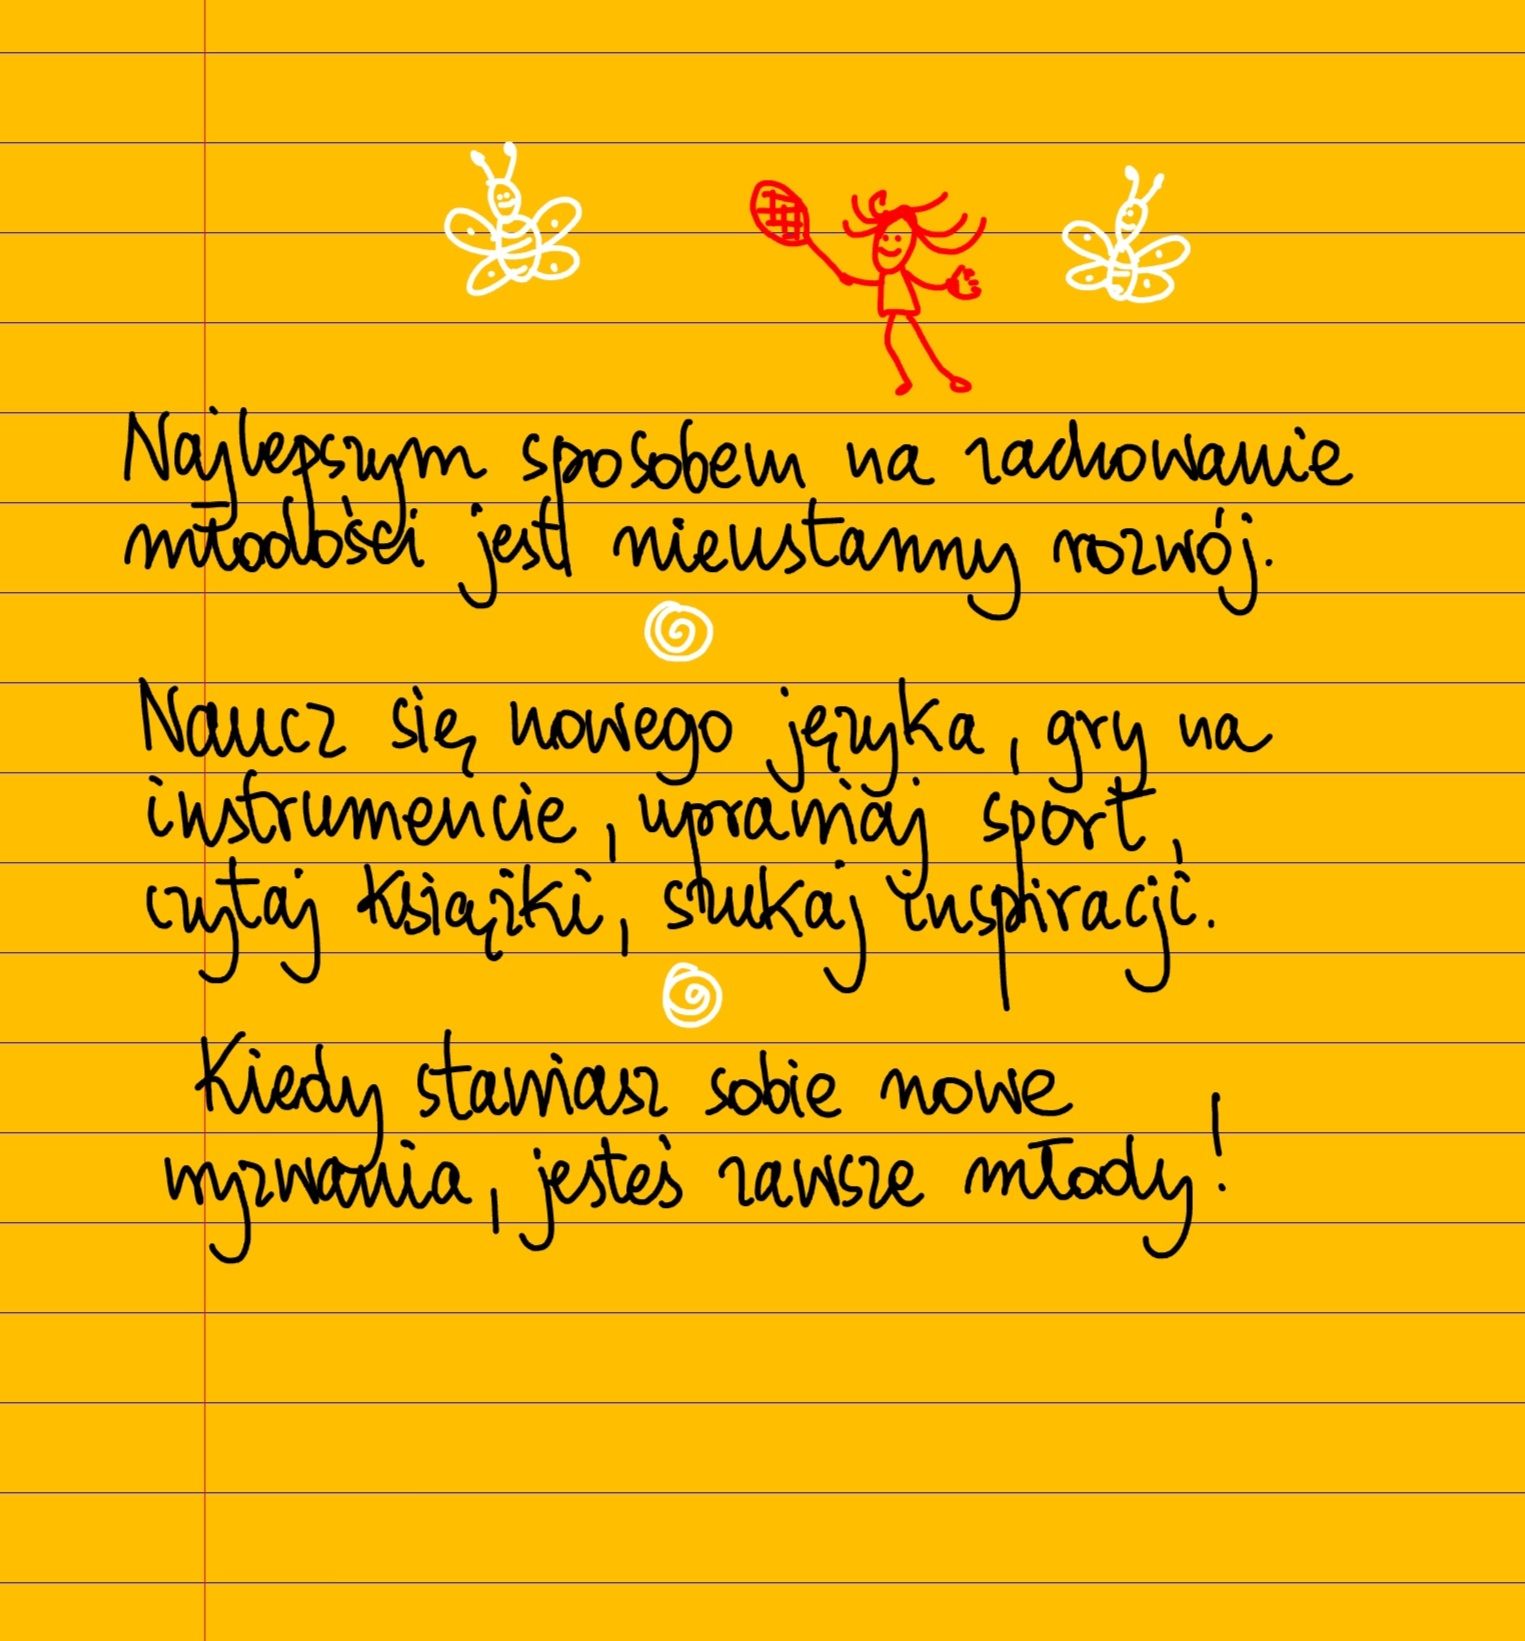 Najlepszym sposobem na zachowanie
młodości jest nieustanny rozwój.
Naucz się nowego języka, gry na
instrumencie, uprawiaj sport,
czytaj książki, szukaj inspiracji.
Kiedy stawiasz sobie nowe
wyzwania, jesteś zawsze młody!